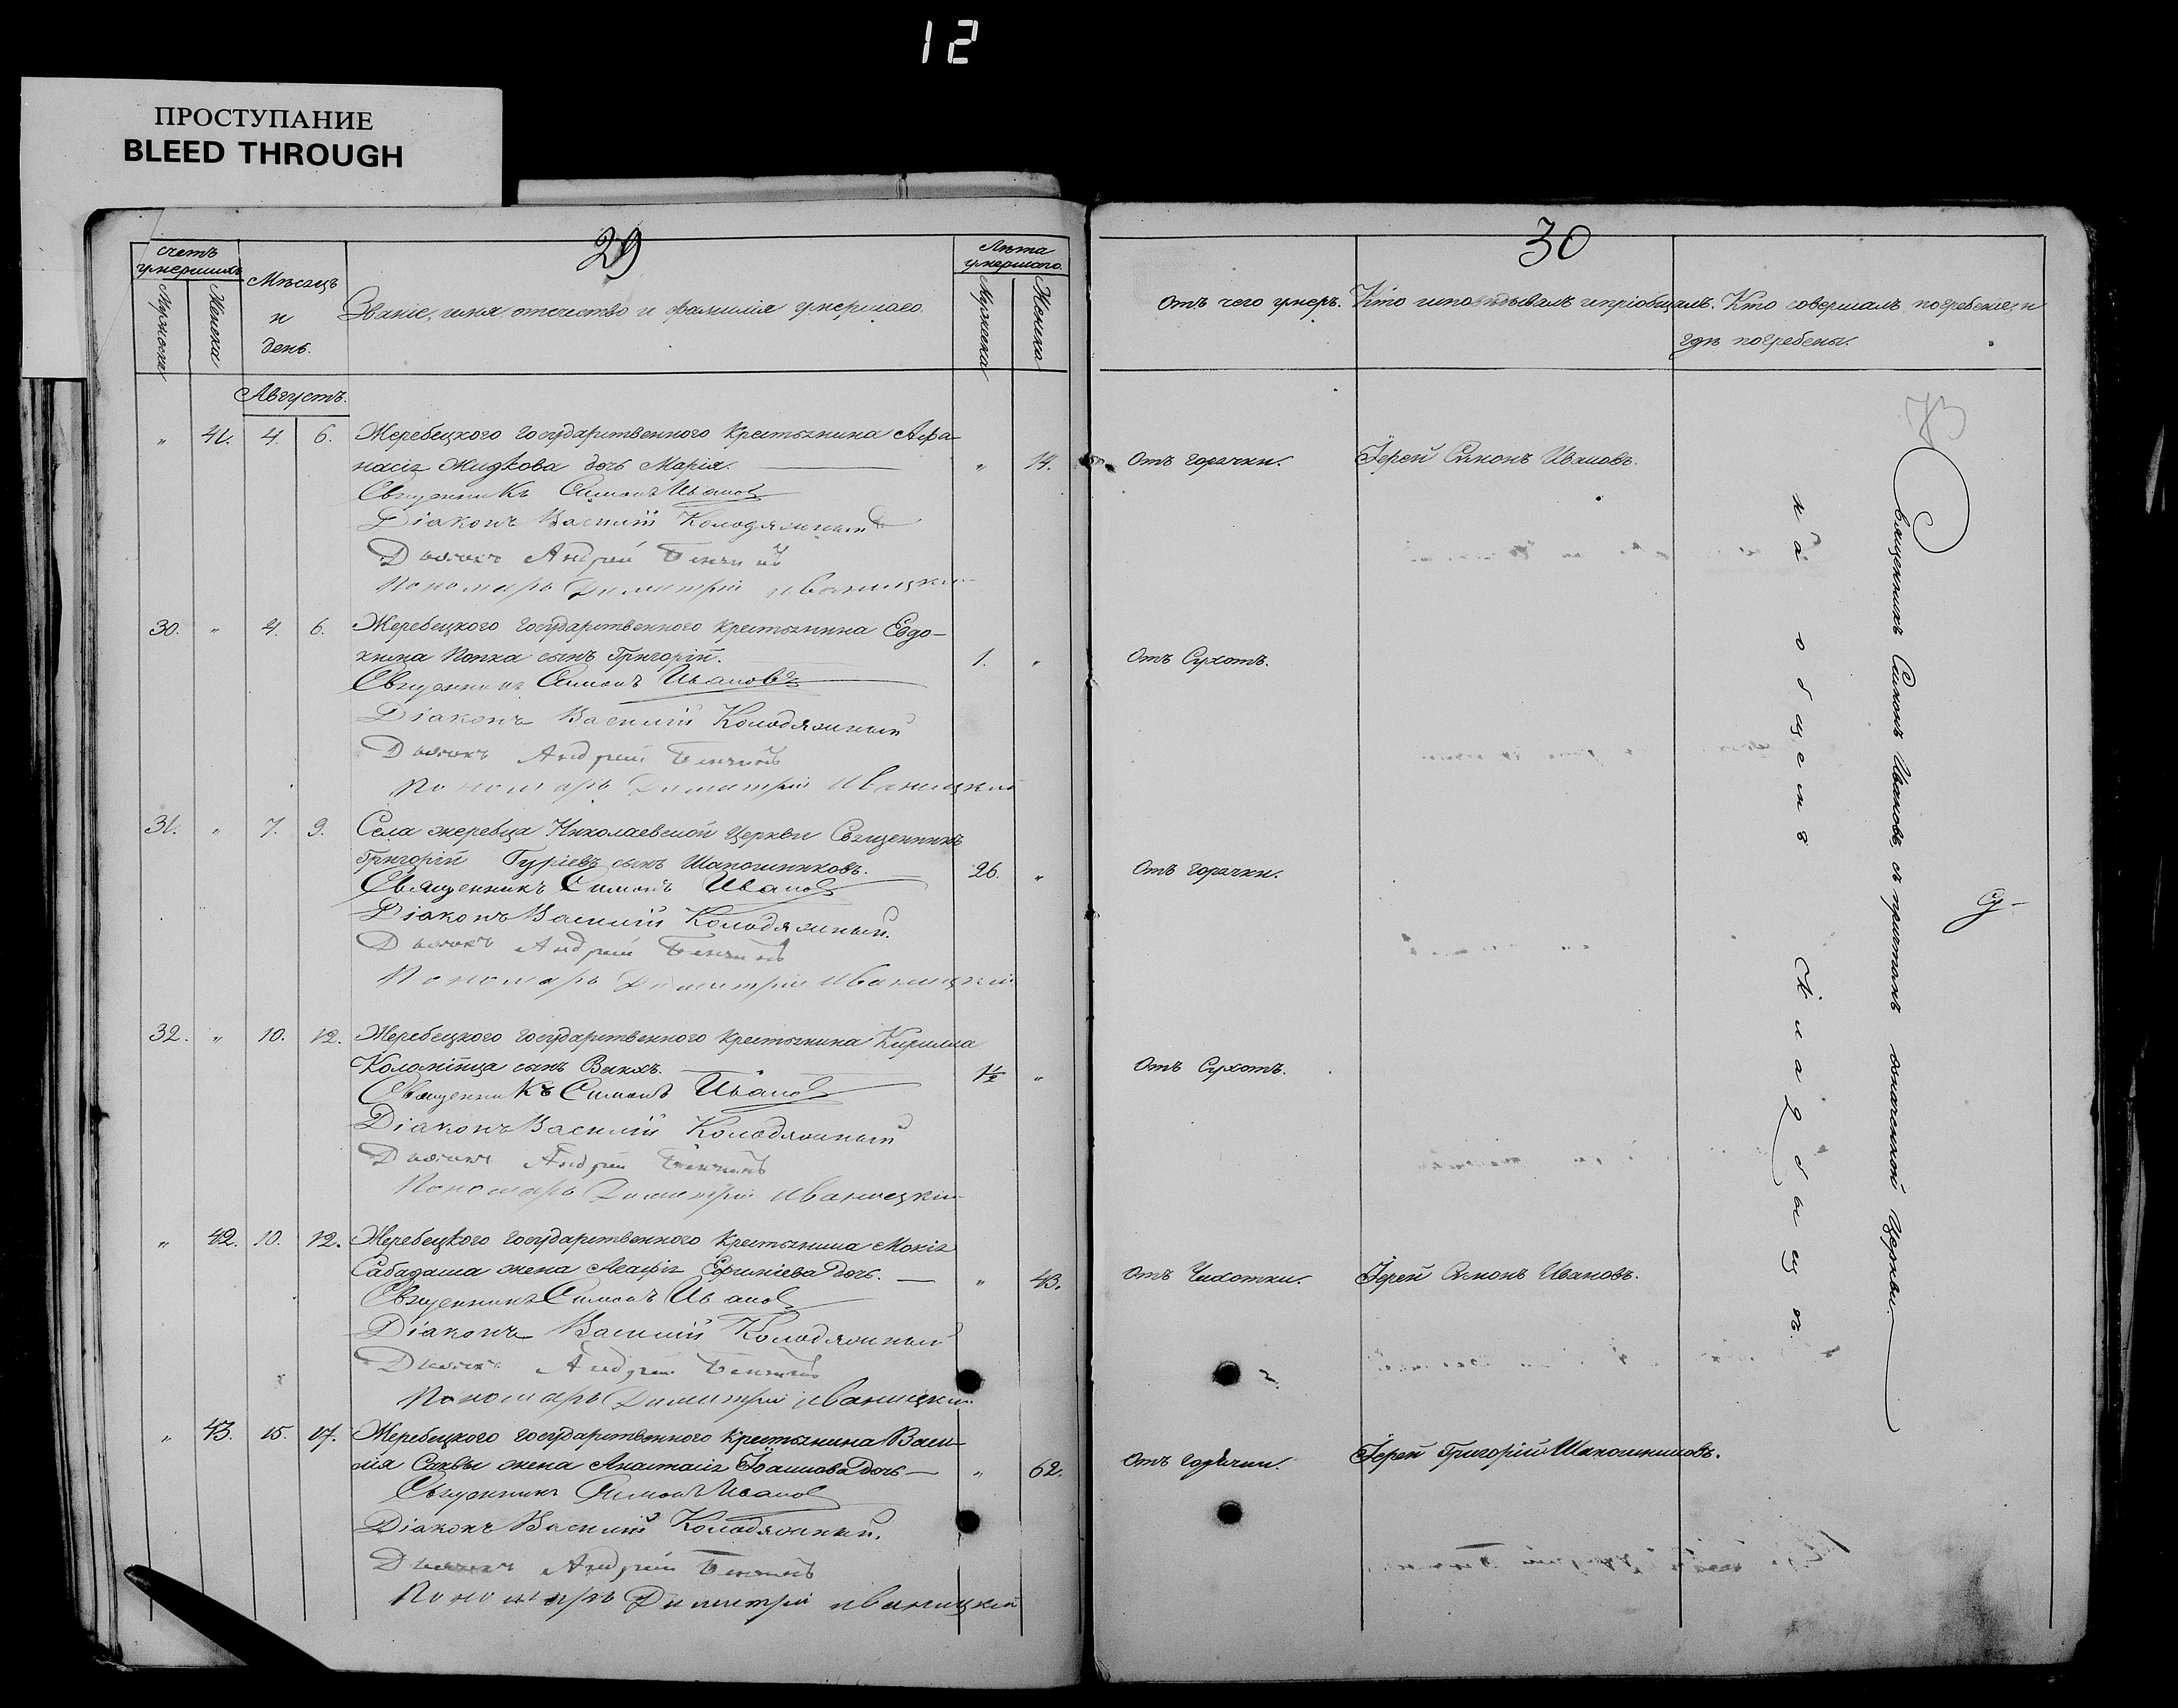 12
ПРОСТУПАНИЕ
BLEED THROUGH
29
Счетъ умершихъ
Мужеска
Женска
Мѣсяцъ и день.
Званіе, имя, отчество и фамилія умершаго.
Лѣта умершаго.
Мужеска
Женска
Августъ.
" 41. 4. 6. Жеребецкого государственного крестьянина Афа-
насія Жидкова дочь Марія. " 14.
Священникъ Симонъ Ивановъ
Діаконъ Василій Колодяжный
Дьячокъ Андрей
Пономарь Димитрій Иваницкій
30. " 4. 6. Жеребецкого государственного крестьянина Евдо-
кима Попка сынъ Григорій. 1. "
Священникъ Симонъ Ивановъ
Діаконъ Василій Колодяжный
Дьячокъ Андрей
Пономарь Димитрій Иваницкій
31. " 7. 9. Села жеребца Николаевской Церкви Священникъ
Григорій Гуріевъ сынъ Шапошниковъ. 26. "
Священникъ Симонъ Ивановъ
Діаконъ Василій Колодяжный.
Дьячокъ Андрей
Пономарь Димитрій Иваницкій
32. " 10. 12. Жеребецкого государственного крестьянина Кирилла
Коломійца сынъ 1½ "
Священникъ Симонъ Ивановъ
Діаконъ Василій Колодяжный
Дьячокъ Андрей
Пономарь Димитрій Иваницкій
" 42. 10. 12. Жеребецкого государственного крестьянина Мокія
Сабадаша жена Агафія Ефиміева дочь. " 43.
Священникъ Симонъ Ивановъ
Діаконъ Василій Колодяжный
Дьячокъ Андрей
Пономарь Димитрій Иваницкій
" 43. 15. 17. Жеребецкого государственного крестьянина Васи-
лія жена Анастасія Іоаннова дочь " 62.
Священникъ Симонъ Ивановъ
Діаконъ Василій Колодяжный.
Дьячокъ Андрей
Пономарь Димитрій Иваницкій
30
Отъ чего умеръ.
Кто исповѣдывалъ и пріобщалъ.
Кто совершалъ погребеніе, и
гдѣ погребены.
73
Отъ горячки. Іерей Симонъ Ивановъ.
Отъ Сухотъ.
Отъ горячки.
Отъ Сухотъ.
Отъ Чахотки. Іерей Симонъ Ивановъ.
Отъ горячки. Іерей Григорій Шапошниковъ.
Священникъ Симонъ Ивановъ, съ причтомъ означенной Церкви.
на общемъ Кладбищѣ.